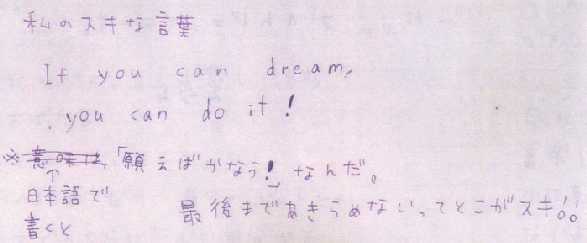 私のスキな言葉
If you can dream,
you can do it!
※意味は「願えばかなう!」なんだ。
↑
日本語で
書くと
最後まであきらめないってとこがスキ!。。